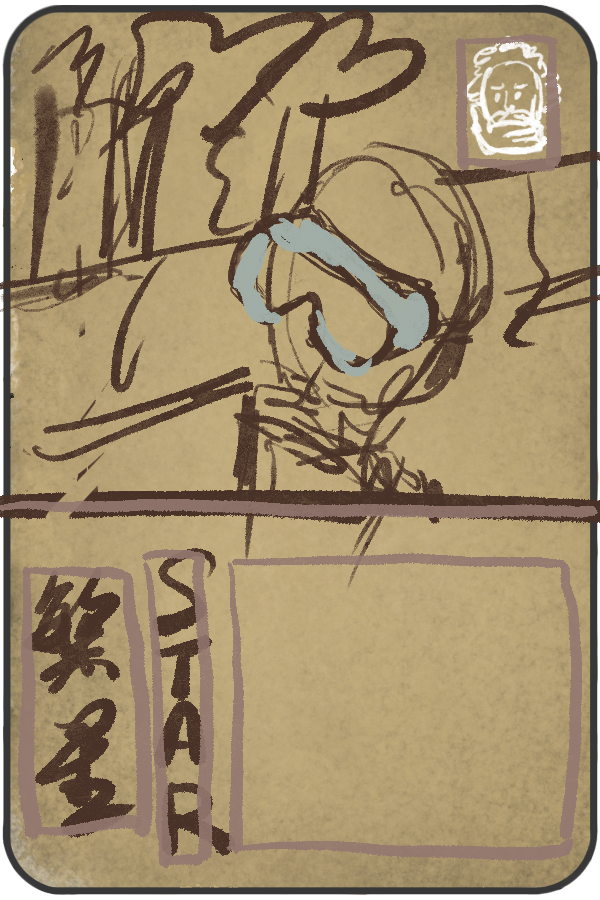 繁星
STAR